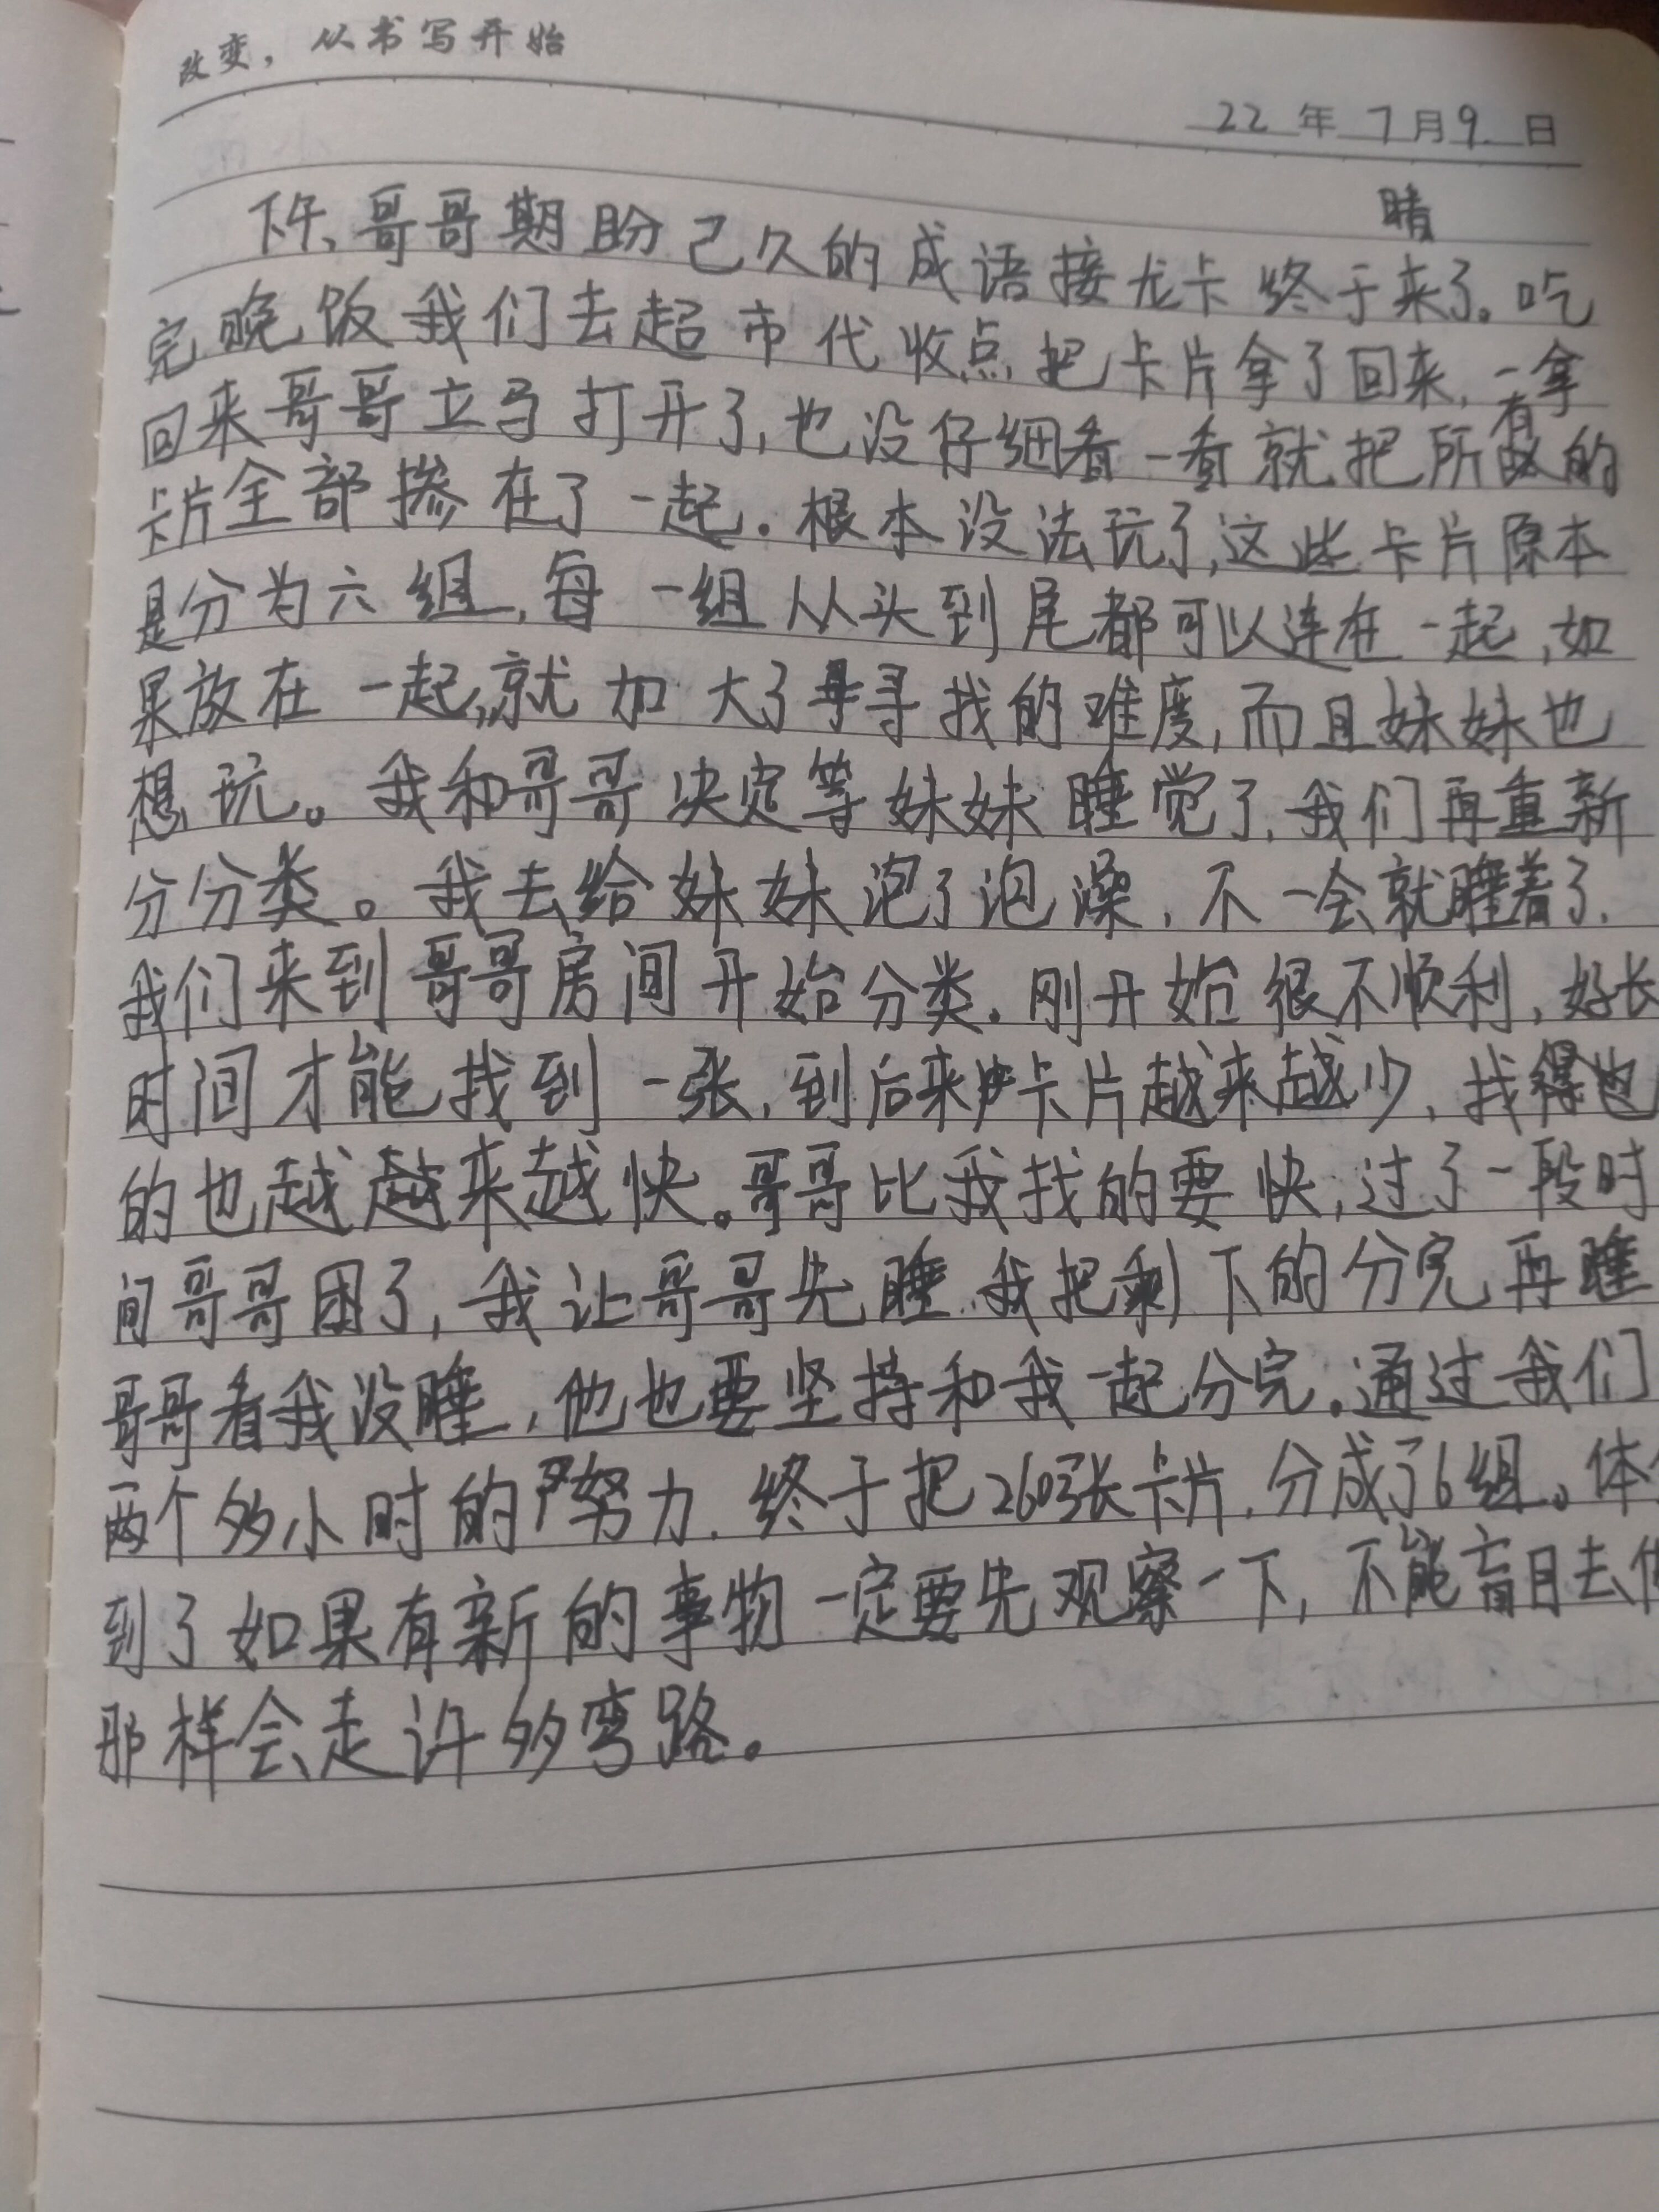 改变，从书写开始
22年7月9日
晴
下午，哥哥期盼已久的成语接龙卡终于来了。吃
完晚饭我们去超市代收点把卡片拿了回来，一拿
回来哥哥立马打开了，也没仔细看一看就把所有的
卡片全部掺在了一起。根本没法玩了，这些卡片原本
是分为六组，每一组从头到尾都可以连在一起，如
果放在一起，就加大了寻找的难度，而且妹妹也
想玩。我和哥哥决定等妹妹睡觉了，我们再重新
分分类。我去给妹妹泡了泡澡，不一会就睡着了，
我们来到哥哥房间开始分类。刚开始很不顺利，好长
时间才能找到一张，到后来卡片越来越少，找得也
的也越越来越快。哥哥比我找的要快，过了一段时
间哥哥困了，我让哥哥先睡，我把剩下的分完再睡
哥哥看我没睡，他也要坚持和我一起分完。通过我们
两个多小时的努力，终于把260张卡片，分成了6组。体
到了如果有新的事物一定要先观察一下，不能盲目去
那样会走许多弯路。